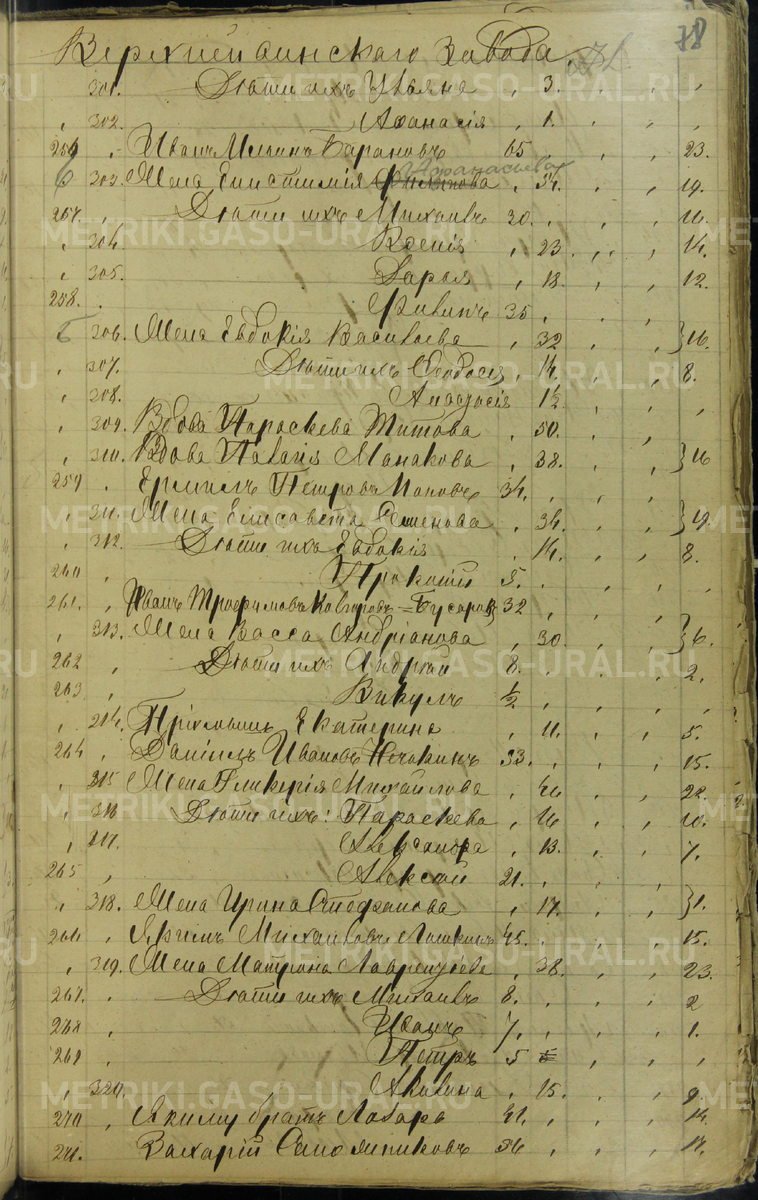 78
Верхнейвинскаго Завода
301. Дѣти ихъ Ульяна , 3. , , ,
302. Афанасія , 1. , , ,
256 , Иванъ Ильинъ Барановъ 65 , , , 23.
Афанасьева
303. Жена Епистимія 54. , , 19.
257. , Дѣти ихъ Михаилъ 30. , , , 16.
, 304. Ксенія , 23 , , , 14.
, 305. Дарья , 18. , , 12.
258. , Филипъ 35 , , ,
306. Жена Евдокія Васильева , 32 , , }16.
, 307. Дѣти ихъ Феодосія , 14. , , 8.
, 308. Анастасія , 1½ , , ,
, 309. Вдова Параскева Титова , 50. , , ,
, 310. Вдова Палагія Манакова , 38. , , }16
259 , Ермилъ Петровъ Поповъ 34. , , ,
, 311. Жена Елисавета Семенова , 34. , , }19.
, 312. Дѣти ихъ Евдокія , 14. , , 8.
260 , Прокопій 5. , , ,
261. , Иванъ Трофимовъ = Бусаровъ 32 , , ,
, 313. Жена Васса Андріанова , 30. , , }6.
262 , Дѣти ихъ Андрей 8. , , , 2.
263 , Викулъ ½ , , , ,
, 314. Пріемышъ Екатерина , 11. , , 5.
264 , Даніилъ Ивановъ 33. , , , 15.
, 315 Жена Гликерія Михайлова , 46 , , 22.
, 316 Дѣти ихъ: Параскева , 16 , , 10.
, 317. Александра , 13. , , 7.
265 , Алексѣй 21. , , ,
, 318. Жена Ирина Стефанова , 17. , , }1.
266 , Яримъ Михаиловъ 45. , , , 15.
, 319. Жена Матрона Лаврентьева , 38. , , 23.
267. , Дѣти ихъ Михаилъ 8. , , , 2
268 , Иванъ 7. , , , 1.
269 , Петръ 5 , , ,
, 320. Акилина , 15. , , 9.
270 , Якиму братъ Лазарь 41. , , , 14.
271. Захарій 36 , , , 14.